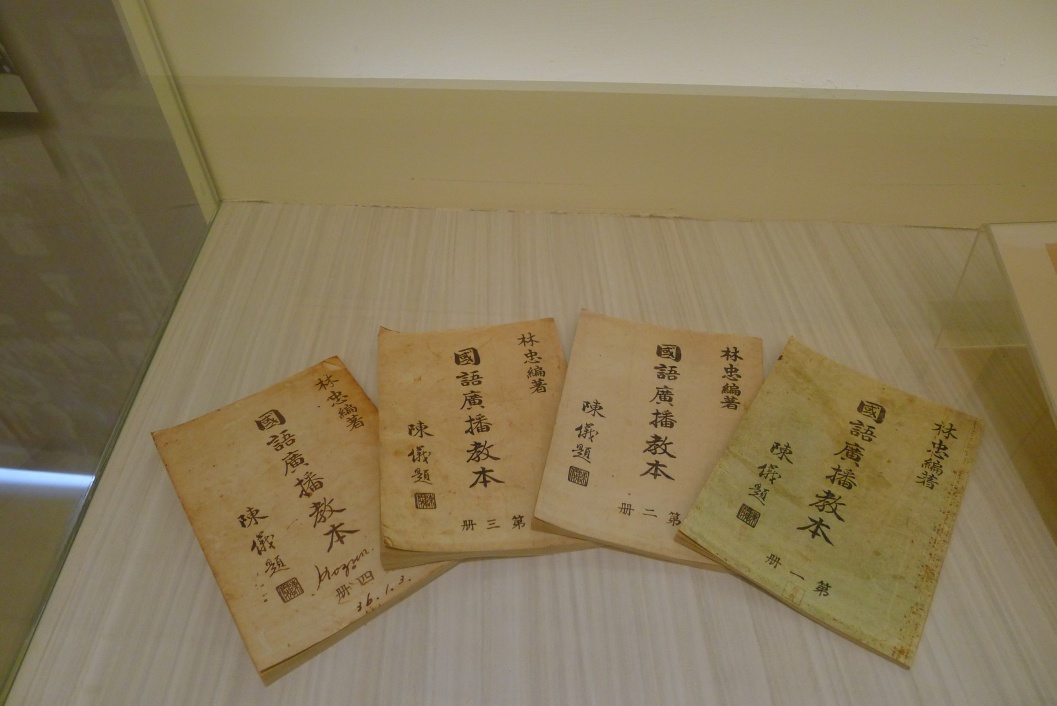 林忠編著
國語廣播教本
陳儀題
第一册
林忠編著
國語廣播教本
陳儀題
第二册
林忠編著
國語廣播教本
陳儀題
第三册
林忠編著
國語廣播教本
陳儀題
四册
36.1.3.